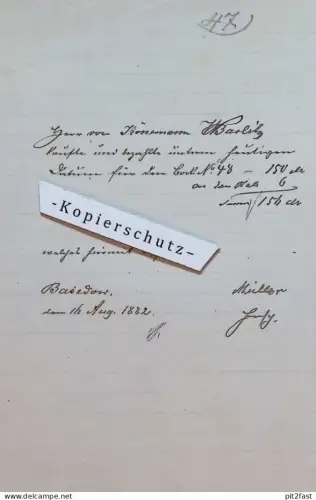 47
Herr von Bönemann Warlitz
kaufte und bezahlte unterm heutigen
Datum für den Bock No 48 – 150 M
an den 6
Summa 156 M
-Kopierschutz-
welches hiermit
Basedow.
den 16 Aug. 1882.
Müller
© Copyright by pit2fast